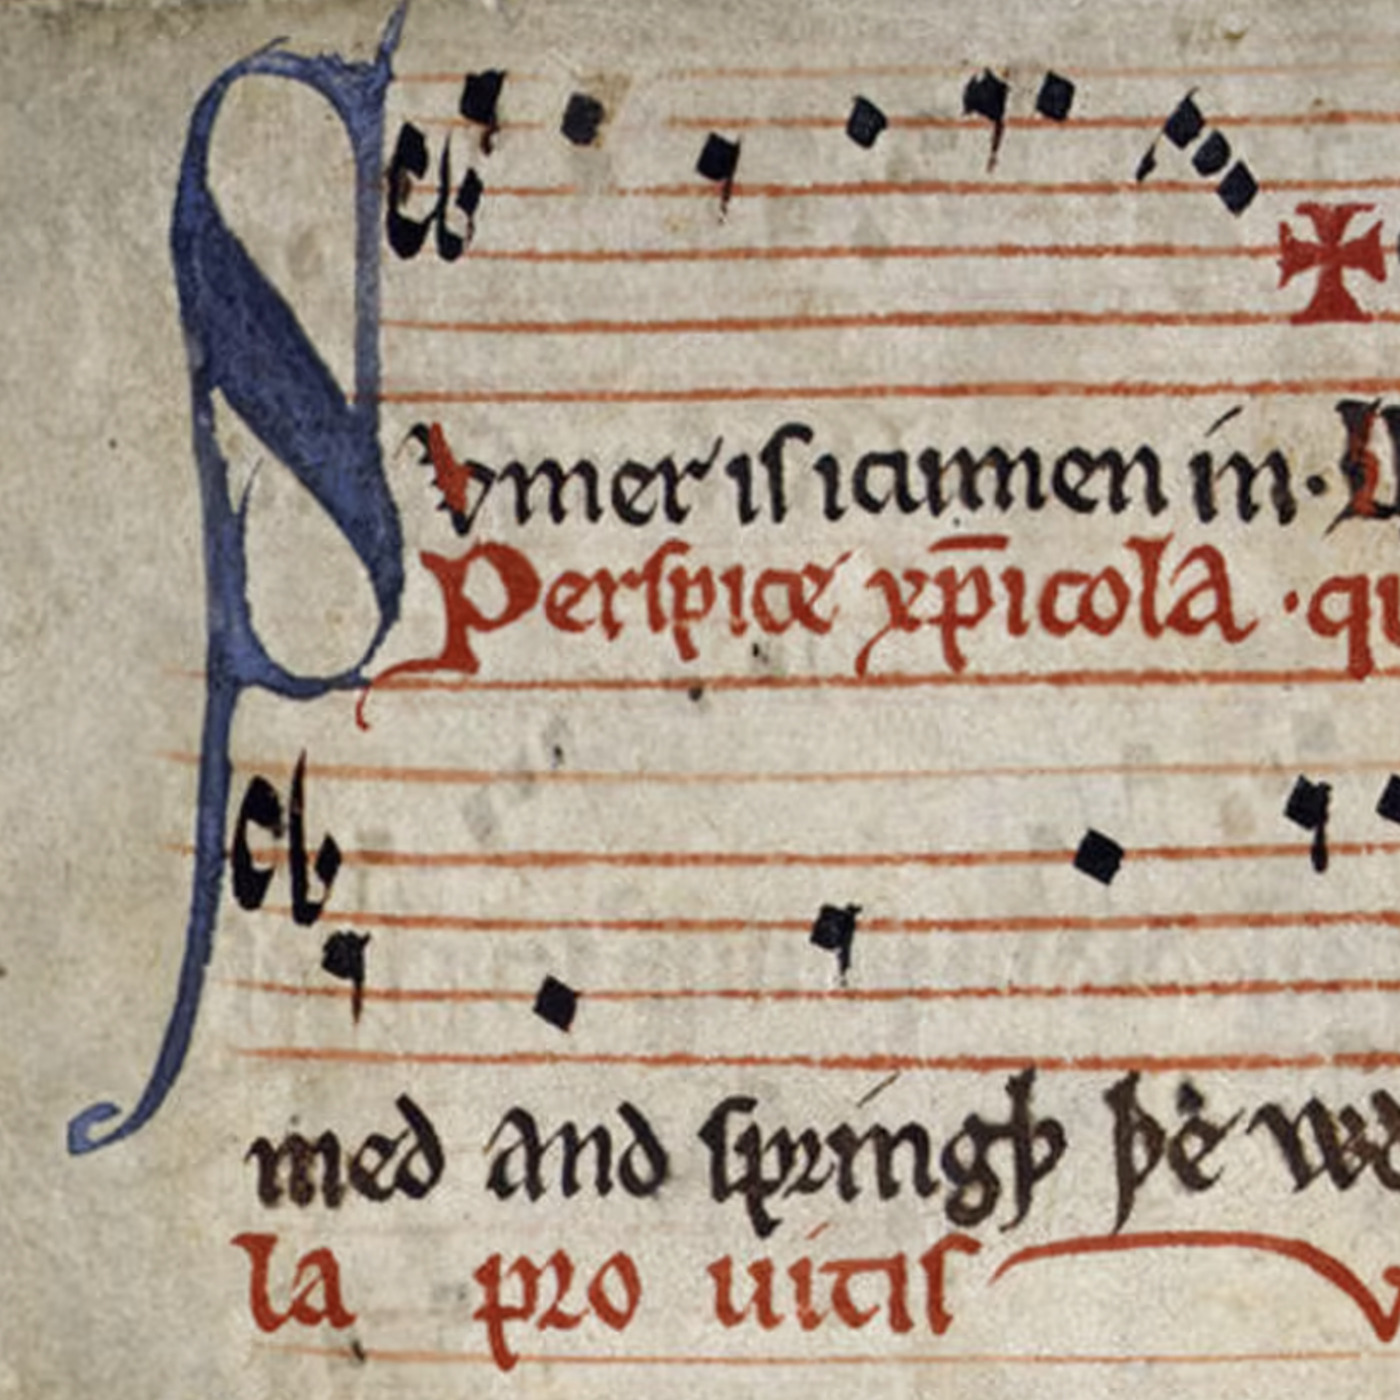 Svmer iſ icumen in·
Perſpice xp̄icola ·q
med and ſpringþ þe we
la pro uitiſ